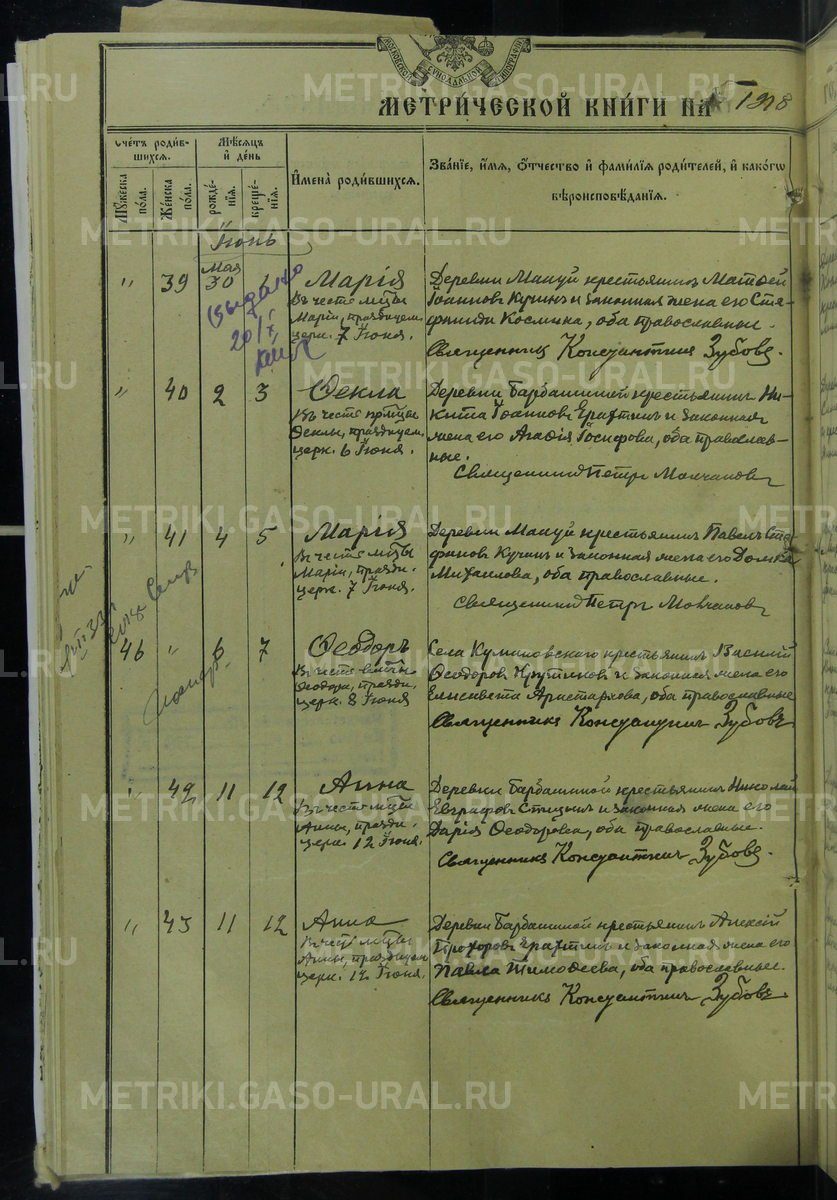 МОСКОВСКОЙ СѴНОДАЛЬНОЙ ТИПОГРАФІИ
МЕТРИ́ЧЕСКОЙ КНИ́ГИ НА 1918
Счетъ родив-
шихся.
Мѣсяцъ
и день
Мужеска пола.
Женска пола.
рожде-
нія.
креще-
нія.
Имена родившихся.
Званіе, имя, отчество и фамилія родителей, и какого
вѣроисповѣданія.
Іюнь
Мая
" 39 30 1 Марія
Въ честь мцы
Маріи, празднуем.
церк. 7 Іюня.
Деревни Макуй крестьянинъ Матѳей
Іоанновъ Кучинъ и законная жена его Сте-
фанида Космина, оба православные.
Священникъ Константинъ Зубовъ.
выдано
20/X
" 40 2 3 Ѳекла
Въ честь прмцы
Ѳеклы, празднуем.
церк. 6 Іюня.
Деревни Барбашиной крестьянинъ Ни-
кита Іоанновъ Ерахтинъ и законная
жена его Агафія Іосифова, оба православ-
ные.
Священникъ Петръ Молчановъ
" 41 4 5 Марія
Въ честь мцы
Маріи, праздн.
церк. 7 Іюня.
Деревни Макуй крестьянинъ Павелъ Сте
фановъ Кучинъ и законная жена его Домна
Михаилова, оба православные.
Священникъ Петръ Молчановъ
46 " 6 7 Ѳеодоръ
Въ честь вмчн.
Ѳеодора, праздн.
церк. 8 Іюня
Села Куликовскаго крестьянинъ Василій
Ѳеодоровъ Крутиковъ и законная жена его
Елисавета Аристархова, оба православные
Священникъ Константинъ Зубовъ
" 42 11 12 Анна
Въ честь мцы
Анны, праздн.
церк. 12 Іюня.
Деревни Барбашиной крестьянинъ Николай
Евграфовъ Спицынъ и законная жена его
Дарія Ѳеодорова, оба православные.
Священникъ Константинъ Зубовъ.
" 43 11 12 Анна
Въ честь мцы
Анны, празднуем
церк. 12 Іюня.
Деревни Барбашиной крестьянинъ Алексій
Прохоровъ Ерахтинъ и законная жена его
Павла Тимоѳеева, оба православные.
Священникъ Константинъ Зубовъ
METRIKI.GASO-URAL.RU